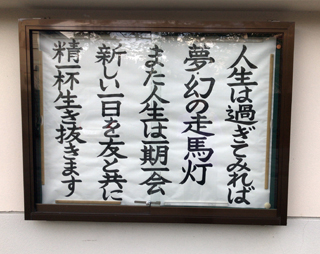 人生は過ぎてみれば
夢幻の走馬灯
また人生は一期一会
新しい一日を友と共に
精一杯生き抜きます